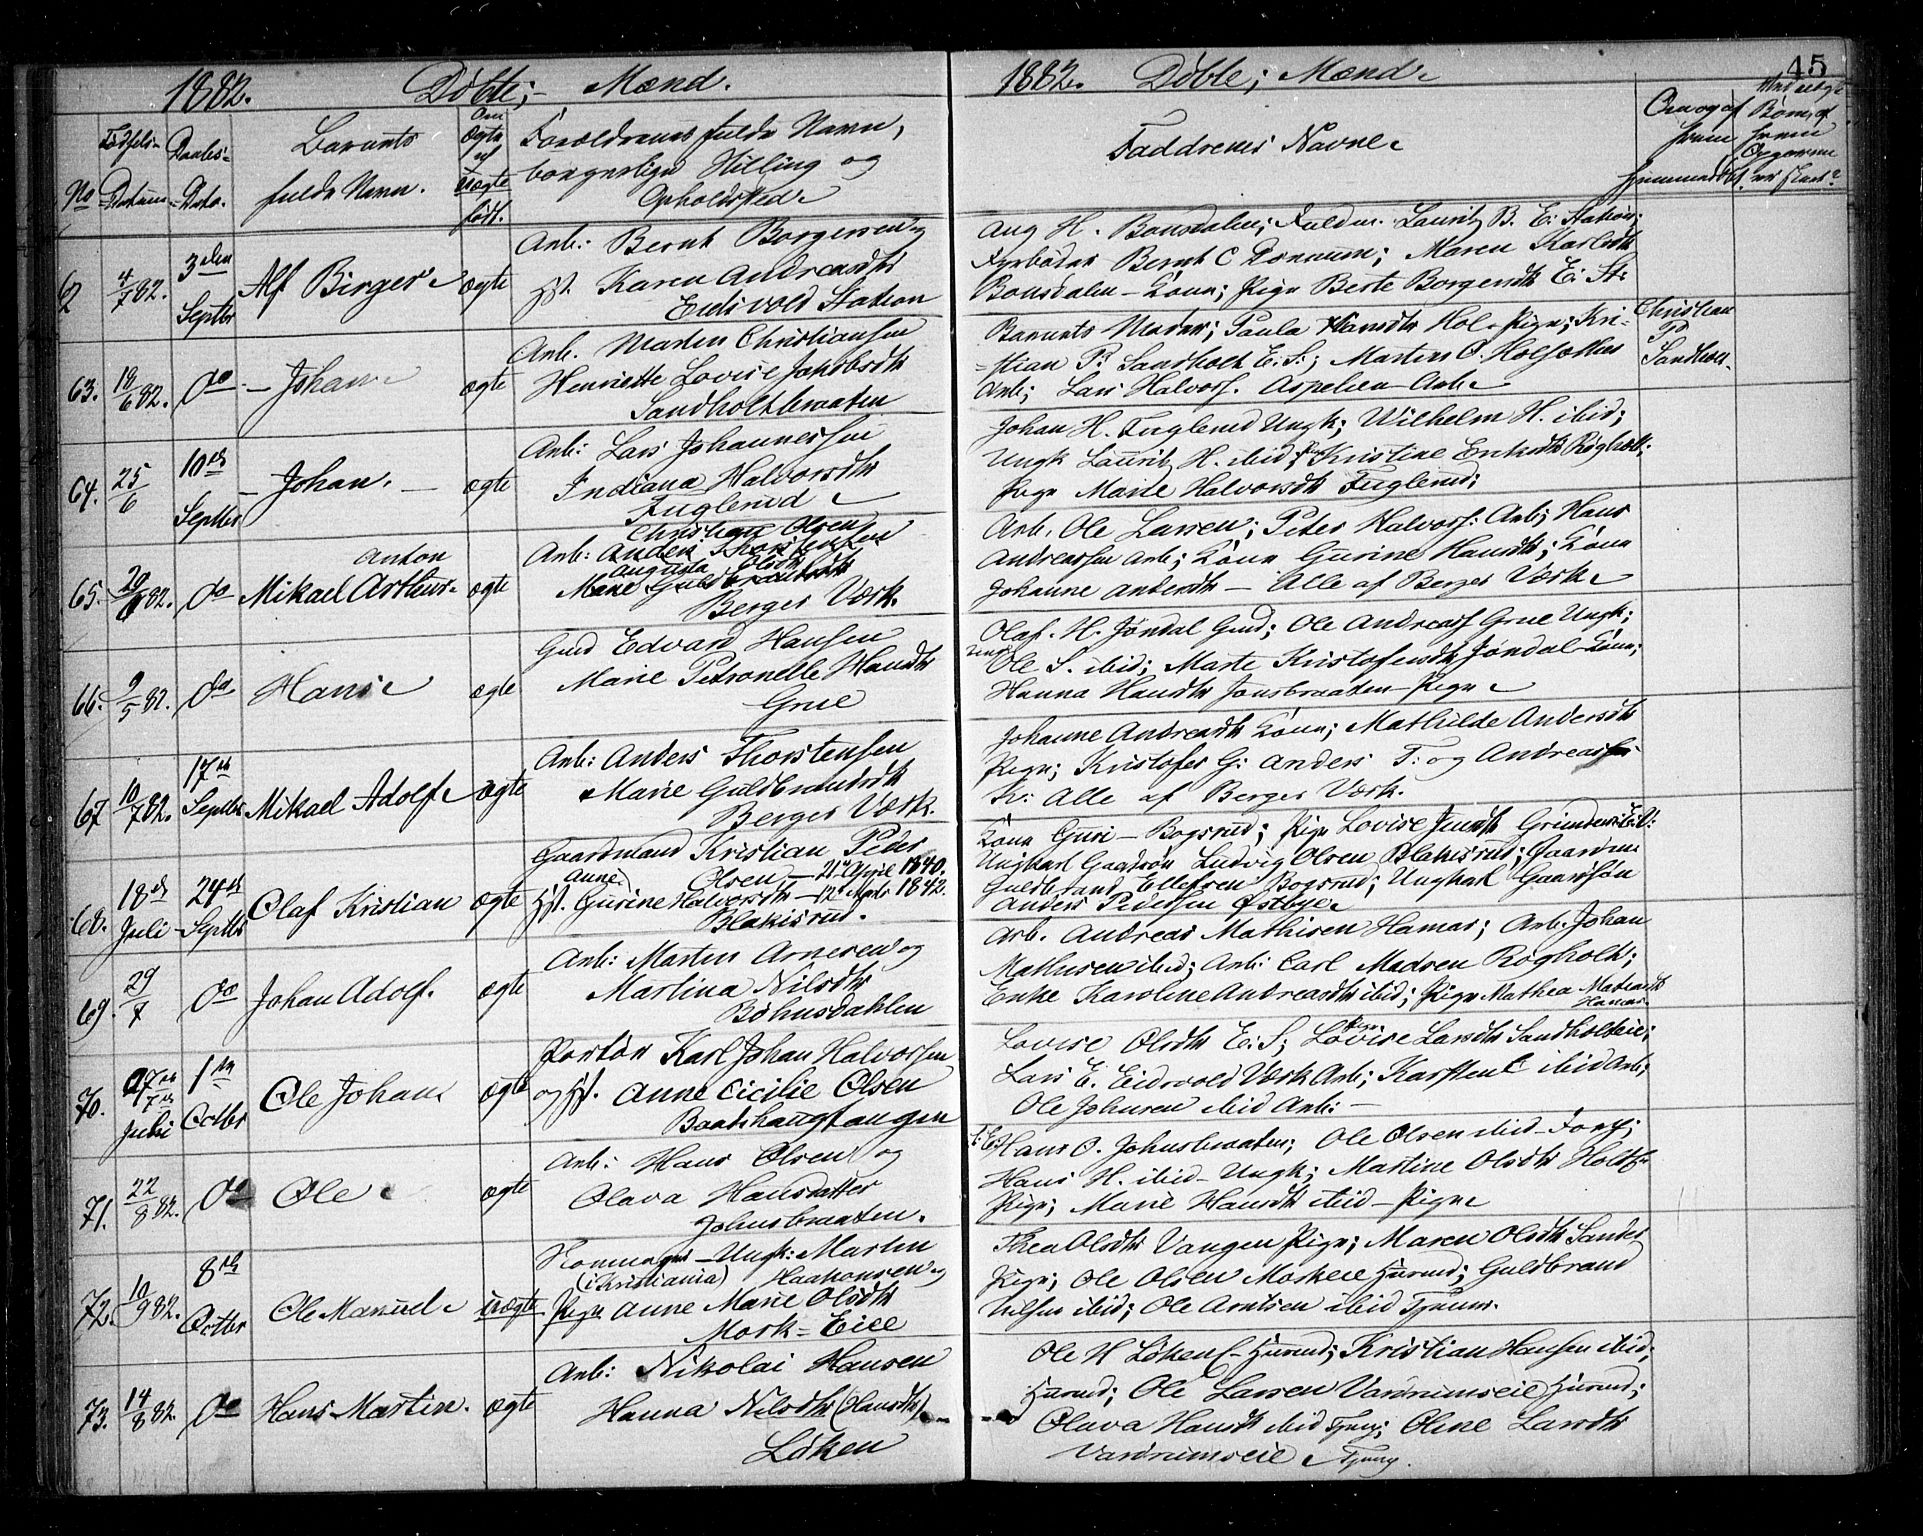 1882. Døbte; Mænd.
No
Fødsels-
Datum
Daabs-
Dato.
Barnets
fulde Navn.
Om
Ægte
el
Uægte
født.
Forældrenes fulde Navn,
borgerlige Stilling og
Opholdsted.
62 4/7 82. 3die Septbr Alf Birger ægte
Arb: Bernt Borgersen og
Hst. Karen Andreasdtr
Eidsvold Station
63. 18/6 82. do Johan ægte
Arb. Martin Christiansen
Henriette Lovise Jakobsdtr
Sandholtbraaten
64. 25/6 10de Septbr Johan. ægte
Arb: Lars Johannessen
Indiana Halvorsdtr
Fuglerud
65. 82. do Mikael Arthur Anton ægte
Christian Olsen
Arb: Anders Thorstensen
Augusta Olsdtr
Marie Guldbrandsdtr
Berger Værk.
66. 9/5 82. do Hans ægte
Grd Edvard Hansen
Marie Petronelle Hansdtr
Grue
67 10/7 82. 17de Septbr Mikael Adolf. ægte
Arb: Anders Thorstensen
Marie Guldbrandsdtr
Berger Værk.
68. 18de Juli 24de Septbr Olaf Kristian ægte
Gaardmand Kristian Peder
Olsen — 21de April 1840.
Anne
Hst. Gurine Halvorsdtr — 12te 1842.
Blakisrud.
69. 29/7 do Johan Adolf. ægte
Arb: Martin Arnesen og
Martina Nilsdtr
Bøhnsdahlen
70. Juli 1ste Octbr Ole Johan ægte
Portør Karl Johan Halvorsen
og Hst. Anne Cicilie Olsen
Baadshaugtangen
71. 22/8 82. do Ole ægte
Arb: Hans Olsen og
Olava Hansdatter
Johnsbraaten.
72. 10/9 82. 8de Octbr Ole Manuel uægte
Ungk: Martin
(i Kristiania) Haakonsen og
Pige Anne Marie Olsdtr
Mork-Eiee
73. 14/8 82. do Hans Martin. ægte
Arb: Nikolai Hansen
Hanna Nilsdtr (Hansdtr)
Løken
1882. Døbte; Mænd. 45
Faddrenes Navne
Om og af
hvem
hjemmedøbt.
Ved uægte
Børn, af
hvem
Opgaven
er skeet?
Aug H. Bonsdalen; Laurits B. E: Station;
Fyrbøder Bernt C Dønnum; Maren Karlsdtr
Bonsdalen - Kone; Pige Berte Borgersdtr E: St:
Barnets Moder; Paula Hansdtr Hol - Pige; Kri-
-stian P. Sandholt E. S:; Martin O. Holsokken
Arb; Lars Halvors. Aspelien - Arb.
Christian
P.
Sandholt.
Johan H. Fuglerud Ungk; Wilhelm H. ibid;
Ungk Laurits H. ibid; Kristine Eriksdtr Rogholt;
Pige Marie Halvorsdtr Fuglerud;
Arb. Ole Larsen; Peder Halvors: Arb; Hans
Andreassen Arb; Kone Gurine Hansdtr; Kone
Johanne Andersdtr — Alle af Berger Værk
Olaf. H. Jøndal Grd; Ole Andreas Grue Ungk;
Ole S. ibid; Marte Kristofersdtr Jøndal - Kone;
Hanna Hansdtr Jonsbraaten - Pige
Johanne Andreasdtr Kone; Mathilde Andersdtr
Pige; Kristofer G: Anders T: og Andreas
K: Alle af Berger Værk.
Kone Guri - Bogsrud; Pige Lovise
Ungkarl Gaardsøn Ludvig Olsen Blakisrud;
Guldbrand Ellefsen Bogsrud; Ungkarl Gaardsøn
Anders Pedersen Østbye
Arb. Andreas Mathisen Hamar; Arb. Johan
Mathisen ibid; Arb: Carl Madsen Rogholt;
Enke Karoline Andreasdtr ibid; Pige Mathea
Hamar
Lovise Olsdtr E: S; Pige Lovise Larsdtr Sandholteie;
Lars E. Eidsvold Værk Arb; Karsten ibid Arb;
Ole Johnsen ibid Arb: —
Hans O. Johnsbraaten; Ole Olsen ibid
Hans H. ibid - Ungk; Martine Olsdtr
Pige; Marie Hansdtr ibid - Pige
Thea Olsdtr Vangen Pige; Maren Olsdtr Sander
Pige; Ole Olsen Morkeie Huusmd; Guldbrand
Nilsen ibid; Ole Arntsen ibid
Ole H Løken Huusmd; Kristian Hansen ibid;
Huusmd; Ole Larsen Vardrumseie Huusmd;
Olava Hansdtr ibid; Oline Larsdtr
Vardrumseie